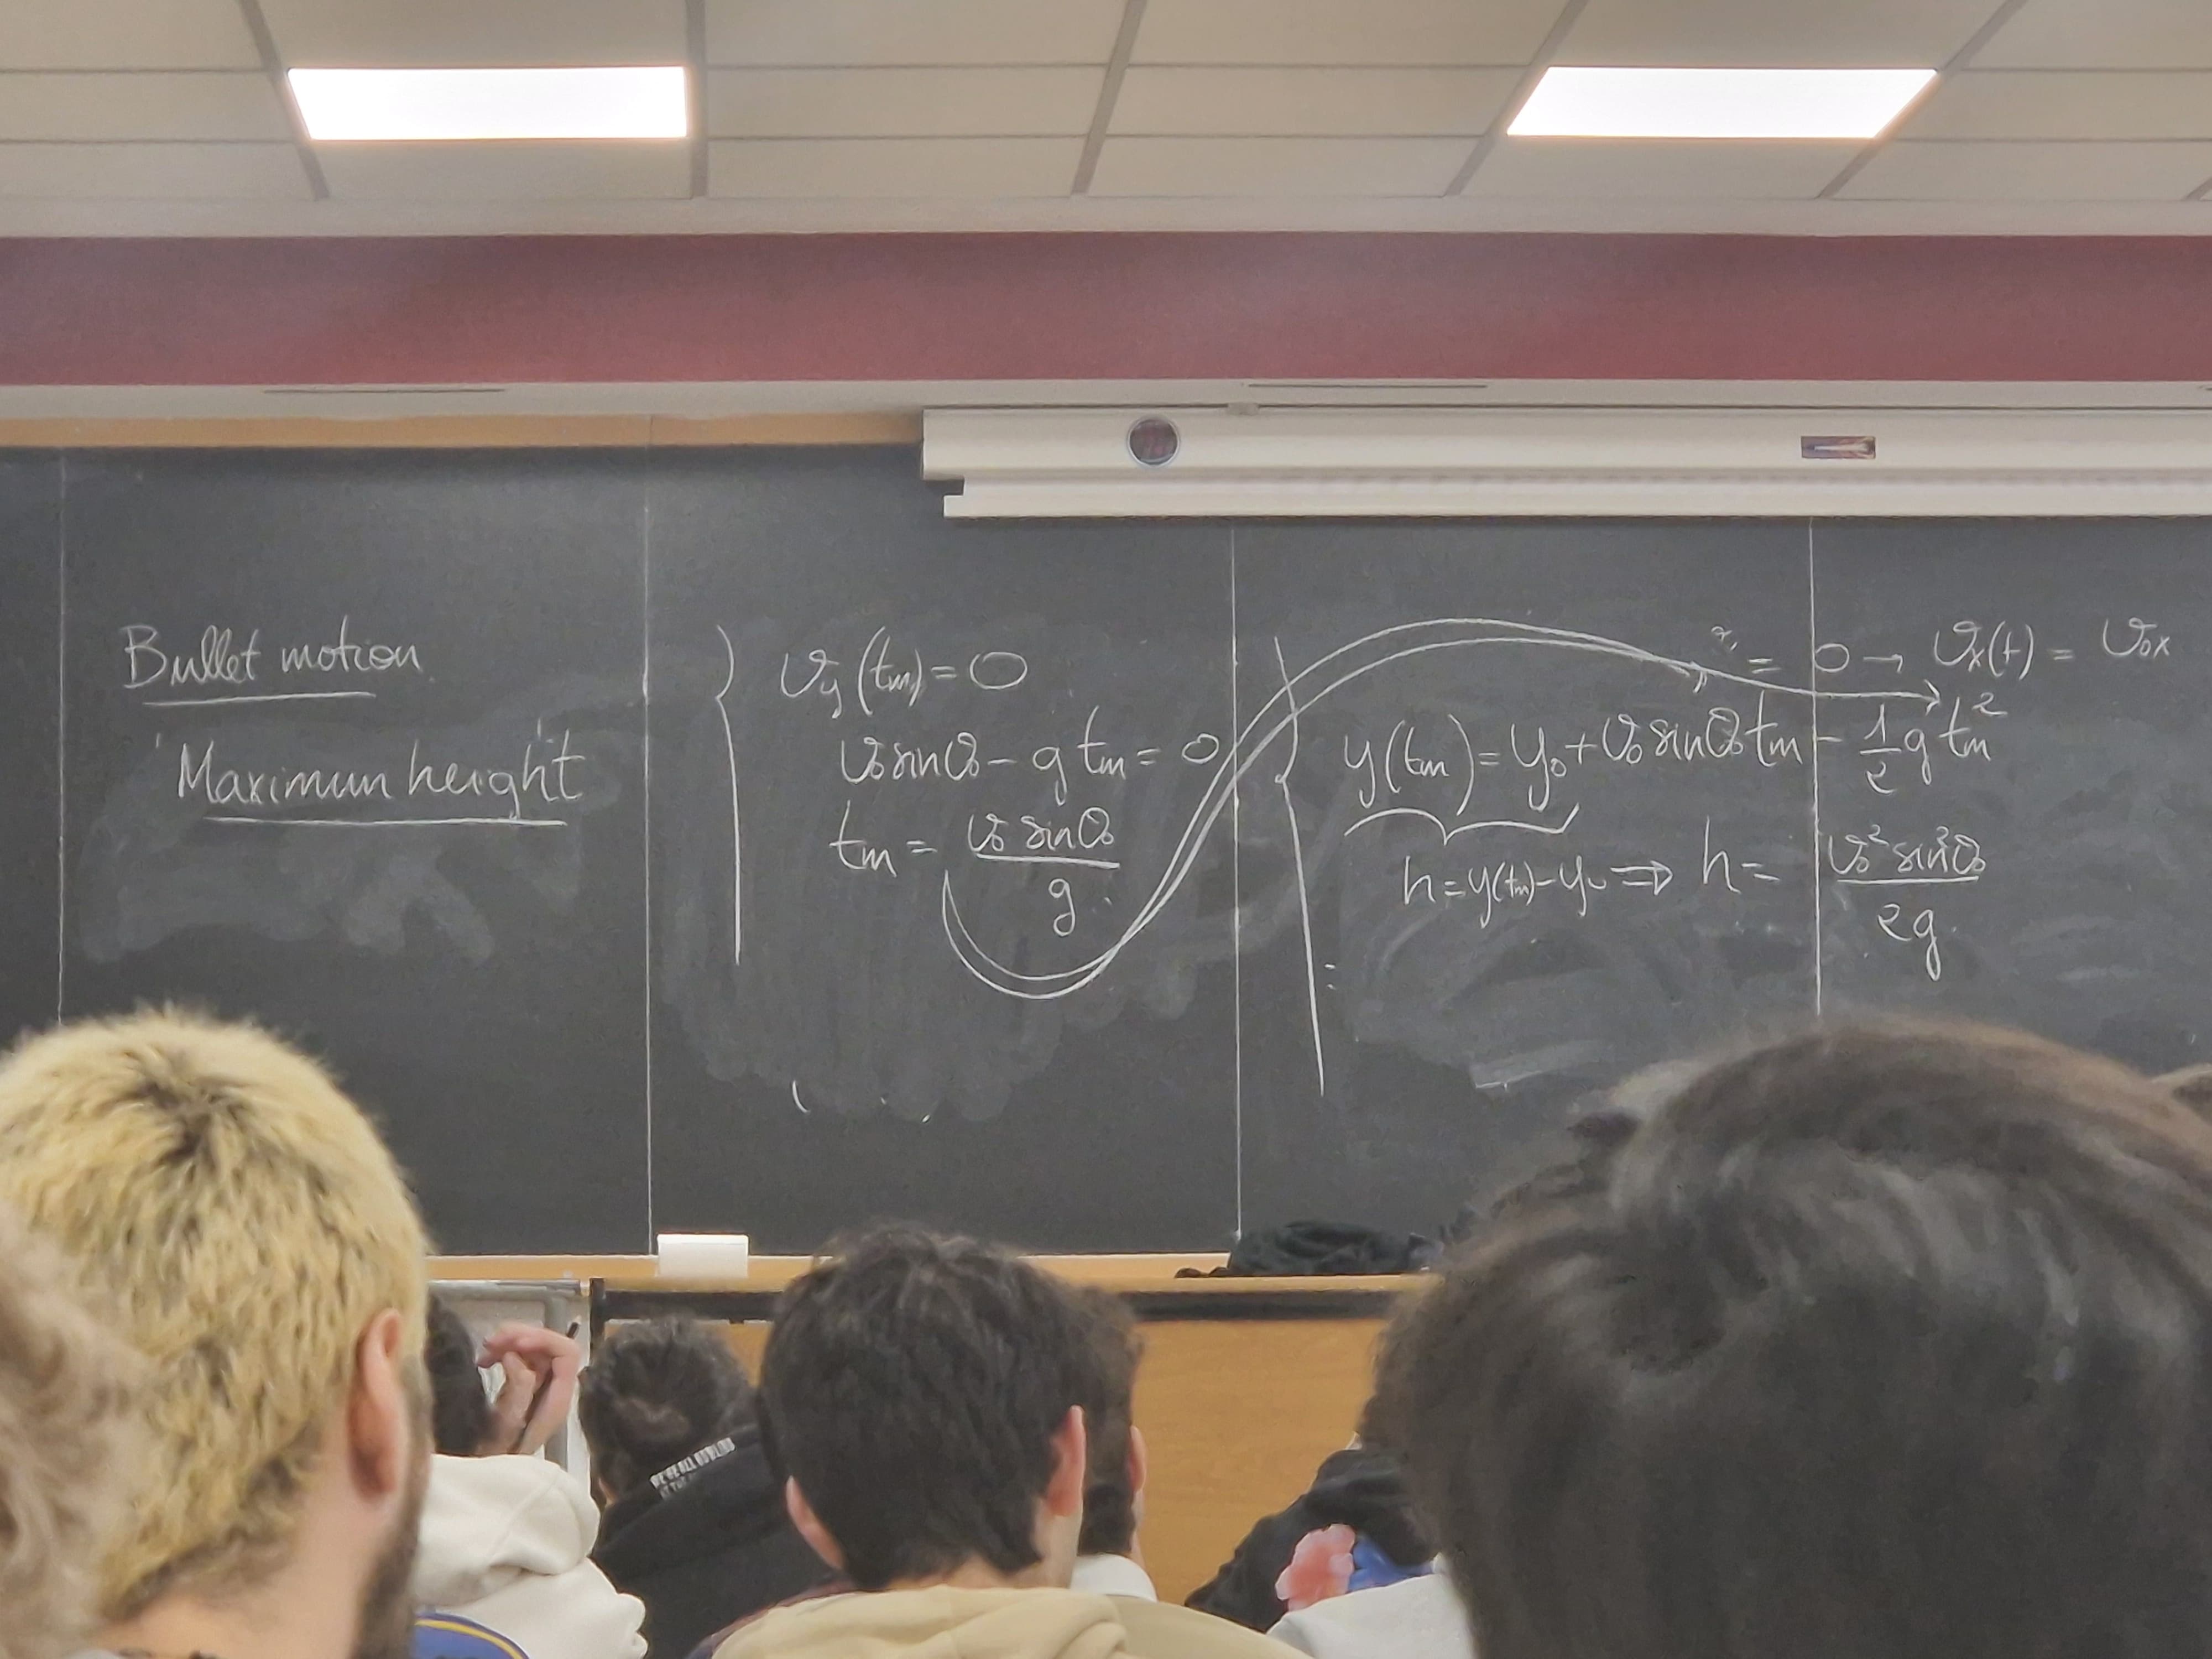 Bullet motion
Maximum height
v_y(t_m) = 0
v₀ sinθ₀ - g t_m = 0
t_m = v₀ sinθ₀ / g
= 0 → v_x(t) = v₀ₓ
y(t_m) = y₀ + v₀ sinθ₀ t_m - 1/2 g t_m²
h = y(t_m) - y₀ ⇒ h = v₀² sin²θ₀ / 2g
WE'RE ALL